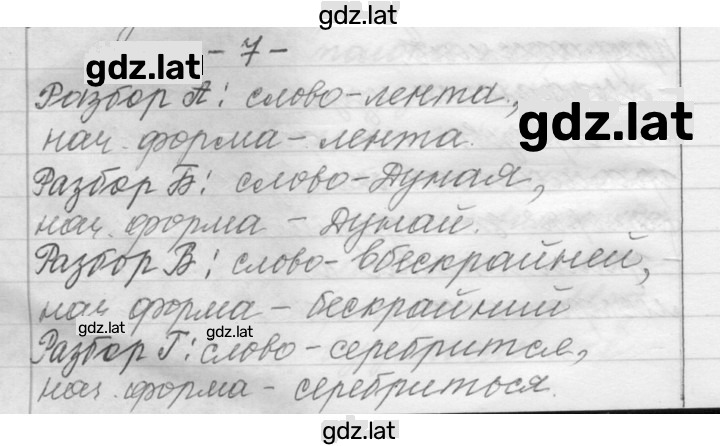 gdz.lat
- 7 -
gdz.lat
Разбор А: слово-лента,
gdz.lat
нач. форма - лента.
Разбор Б: слово-Дуная,
нач. форма - Дунай.
Разбор В: слово-вбескрайней,
нач. форма - бескрайний
gdz.lat
gdz.lat
Разбор Г: слово-серебрится,
нач. форма - серебриться.
gdz.lat